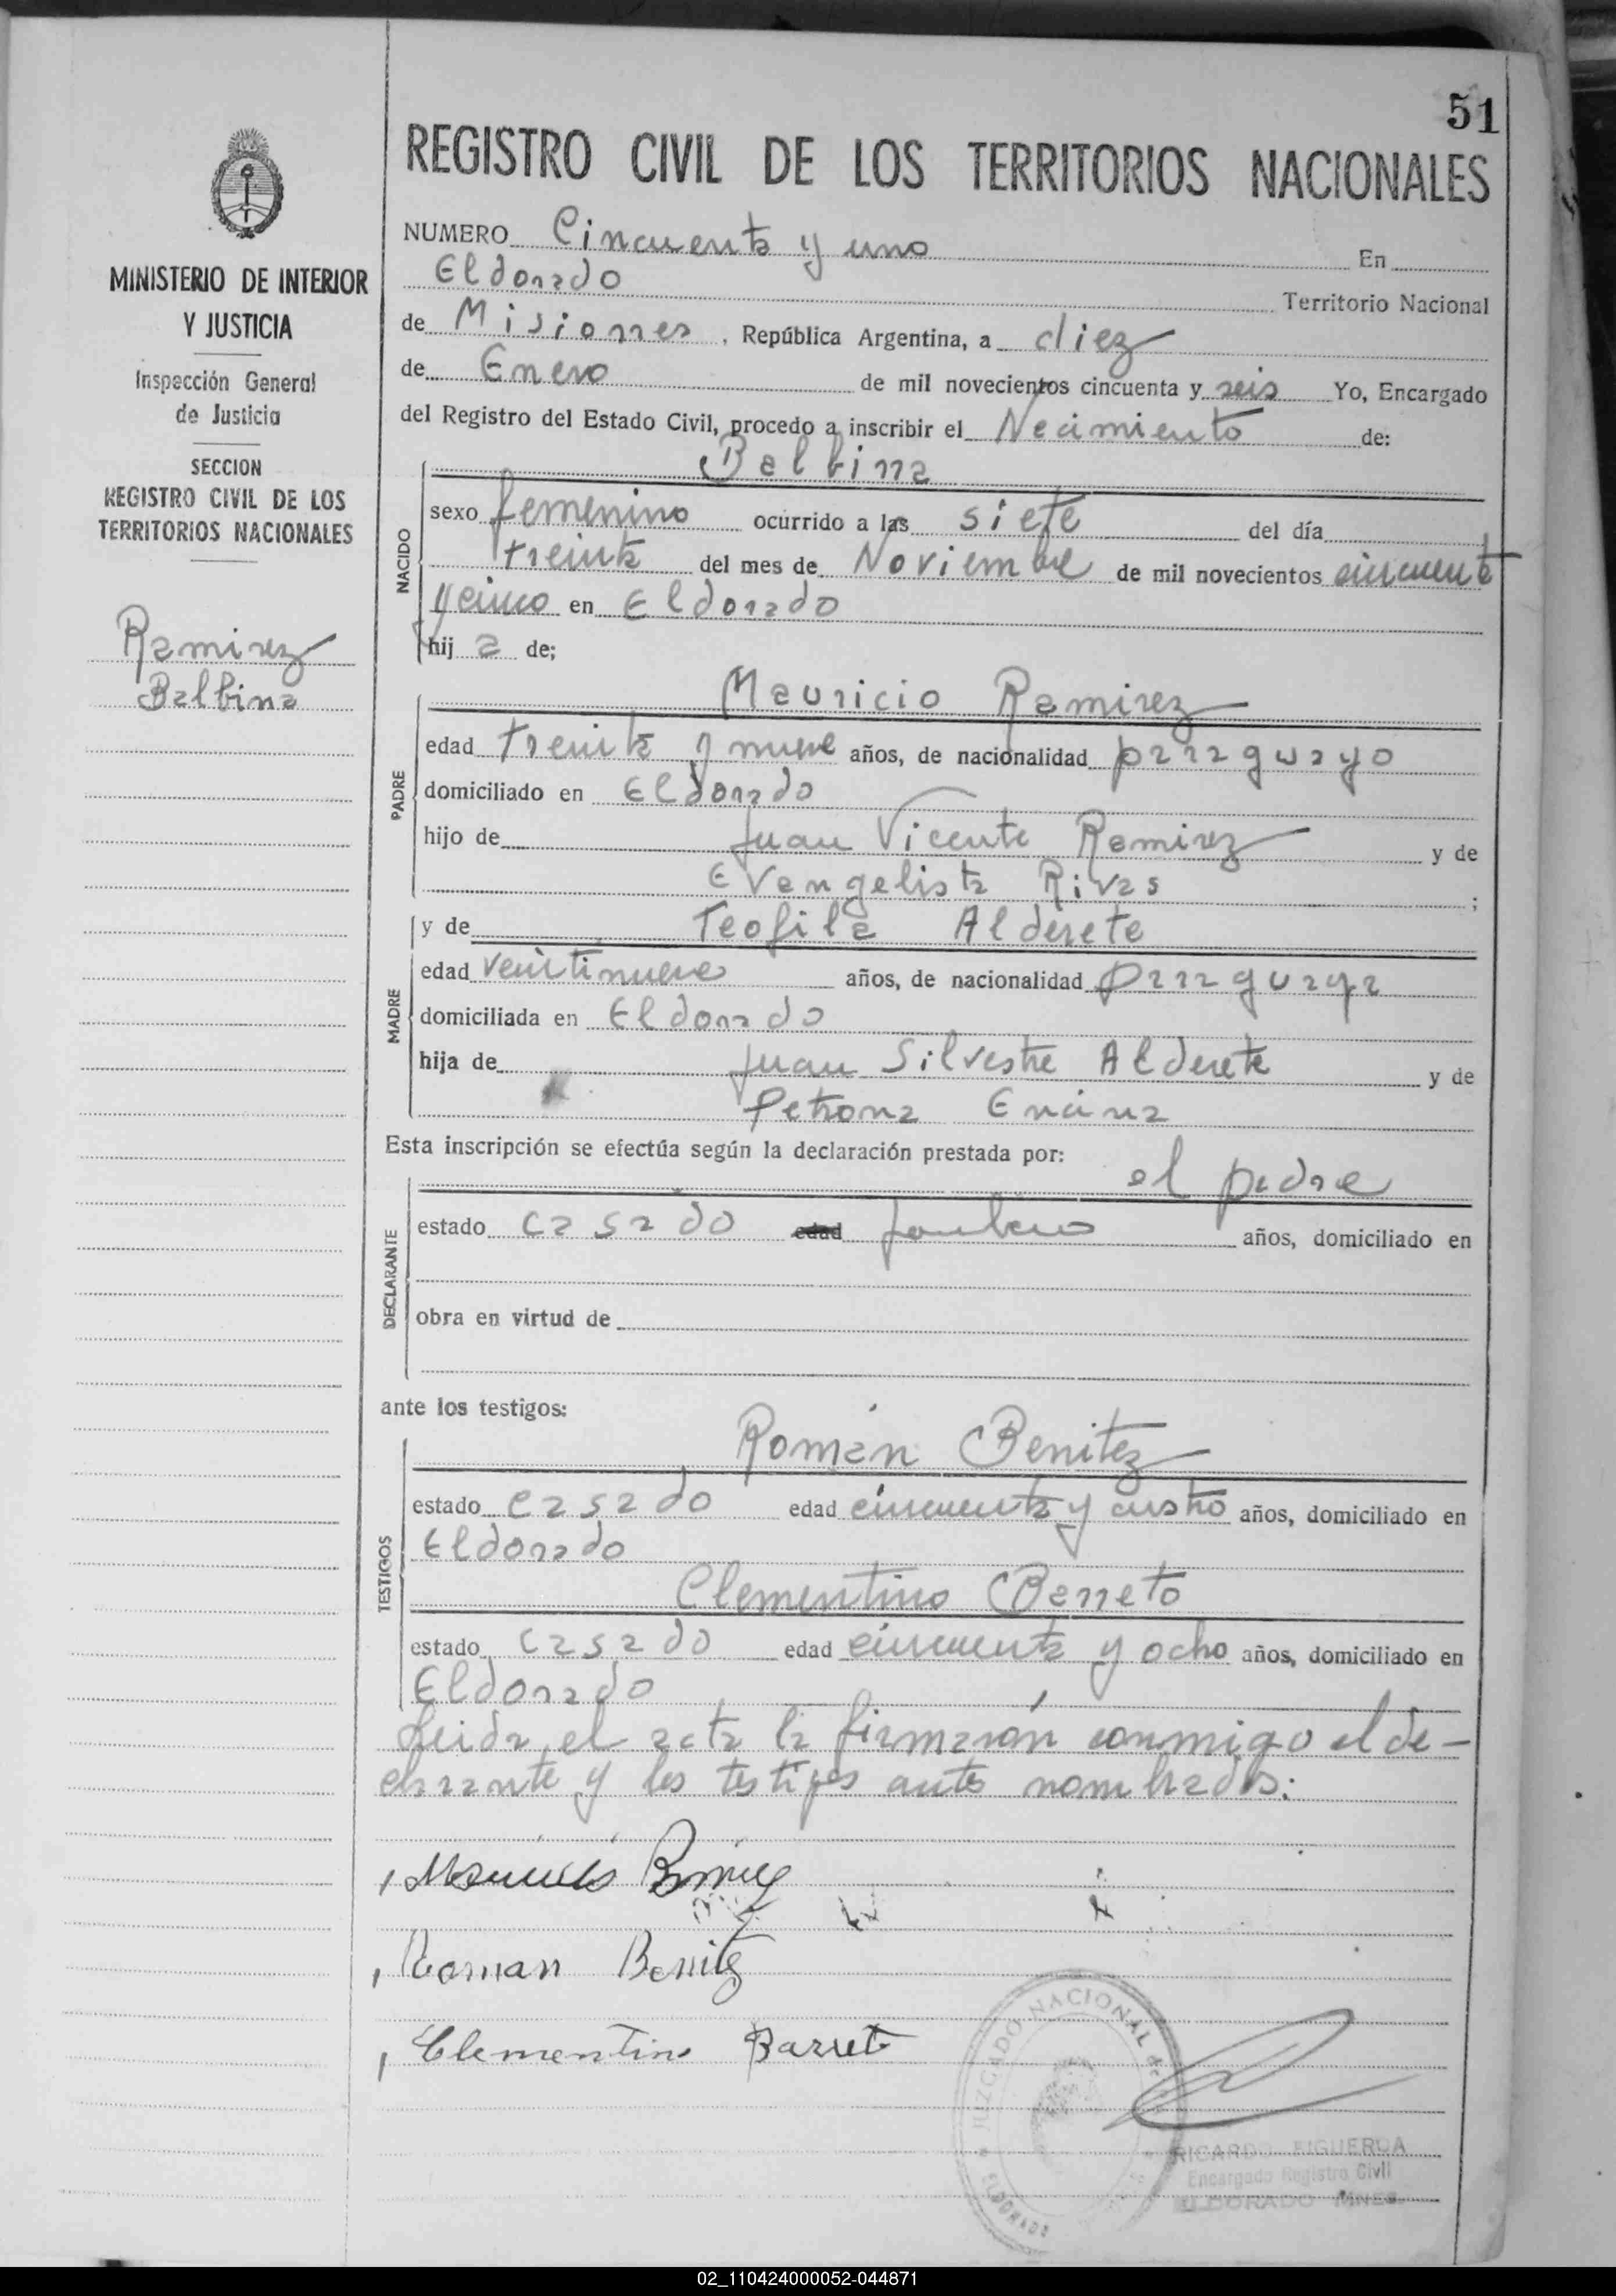 51
REGISTRO CIVIL DE LOS TERRITORIOS NACIONALES
MINISTERIO DE INTERIOR
Y JUSTICIA
Inspección General
de Justicia
SECCION
REGISTRO CIVIL DE LOS
TERRITORIOS NACIONALES
Ramirez
Balbina
NUMERO Cincuenta y uno En
Eldorado Territorio Nacional
de Misiones, República Argentina, a diez
de Enero de mil novecientos cincuenta y seis Yo, Encargado
del Registro del Estado Civil, procedo a inscribir el Nacimiento de:
NACIDO
Balbina
sexo femenino ocurrido a las siete del día
treinta del mes de Noviembre de mil novecientos cincuenta
y cinco en Eldorado
hij a de;
PADRE
Mauricio Ramirez
edad treinta y nueve años, de nacionalidad paraguayo
domiciliado en Eldorado
hijo de Juan Vicente Ramirez y de
Evangelista Rivas ;
MADRE
y de Teofila Alderete
edad veintinueve años, de nacionalidad paraguaya
domiciliada en Eldorado
hija de Juan Silvestre Alderete y de
Petrona Encina
Esta inscripción se efectúa según la declaración prestada por:
DECLARANTE
el padre
estado casado edad años, domiciliado en
obra en virtud de
ante los testigos:
TESTIGOS
Román Benitez
estado casado edad cincuenta y cuatro años, domiciliado en
Eldorado
Clementino Barreto
estado casado edad cincuenta y ocho años, domiciliado en
Eldorado
Leida el acta la firmarón conmigo el de-
clarante y los testigos antes nombrados:
Roman Benitez
Clementino Barreto
JUZGADO NACIONAL
ELDORADO
RICARDO FIGUEROA
Encargado Registro Civil
ELDORADO MNES.
02_110424000052-044871